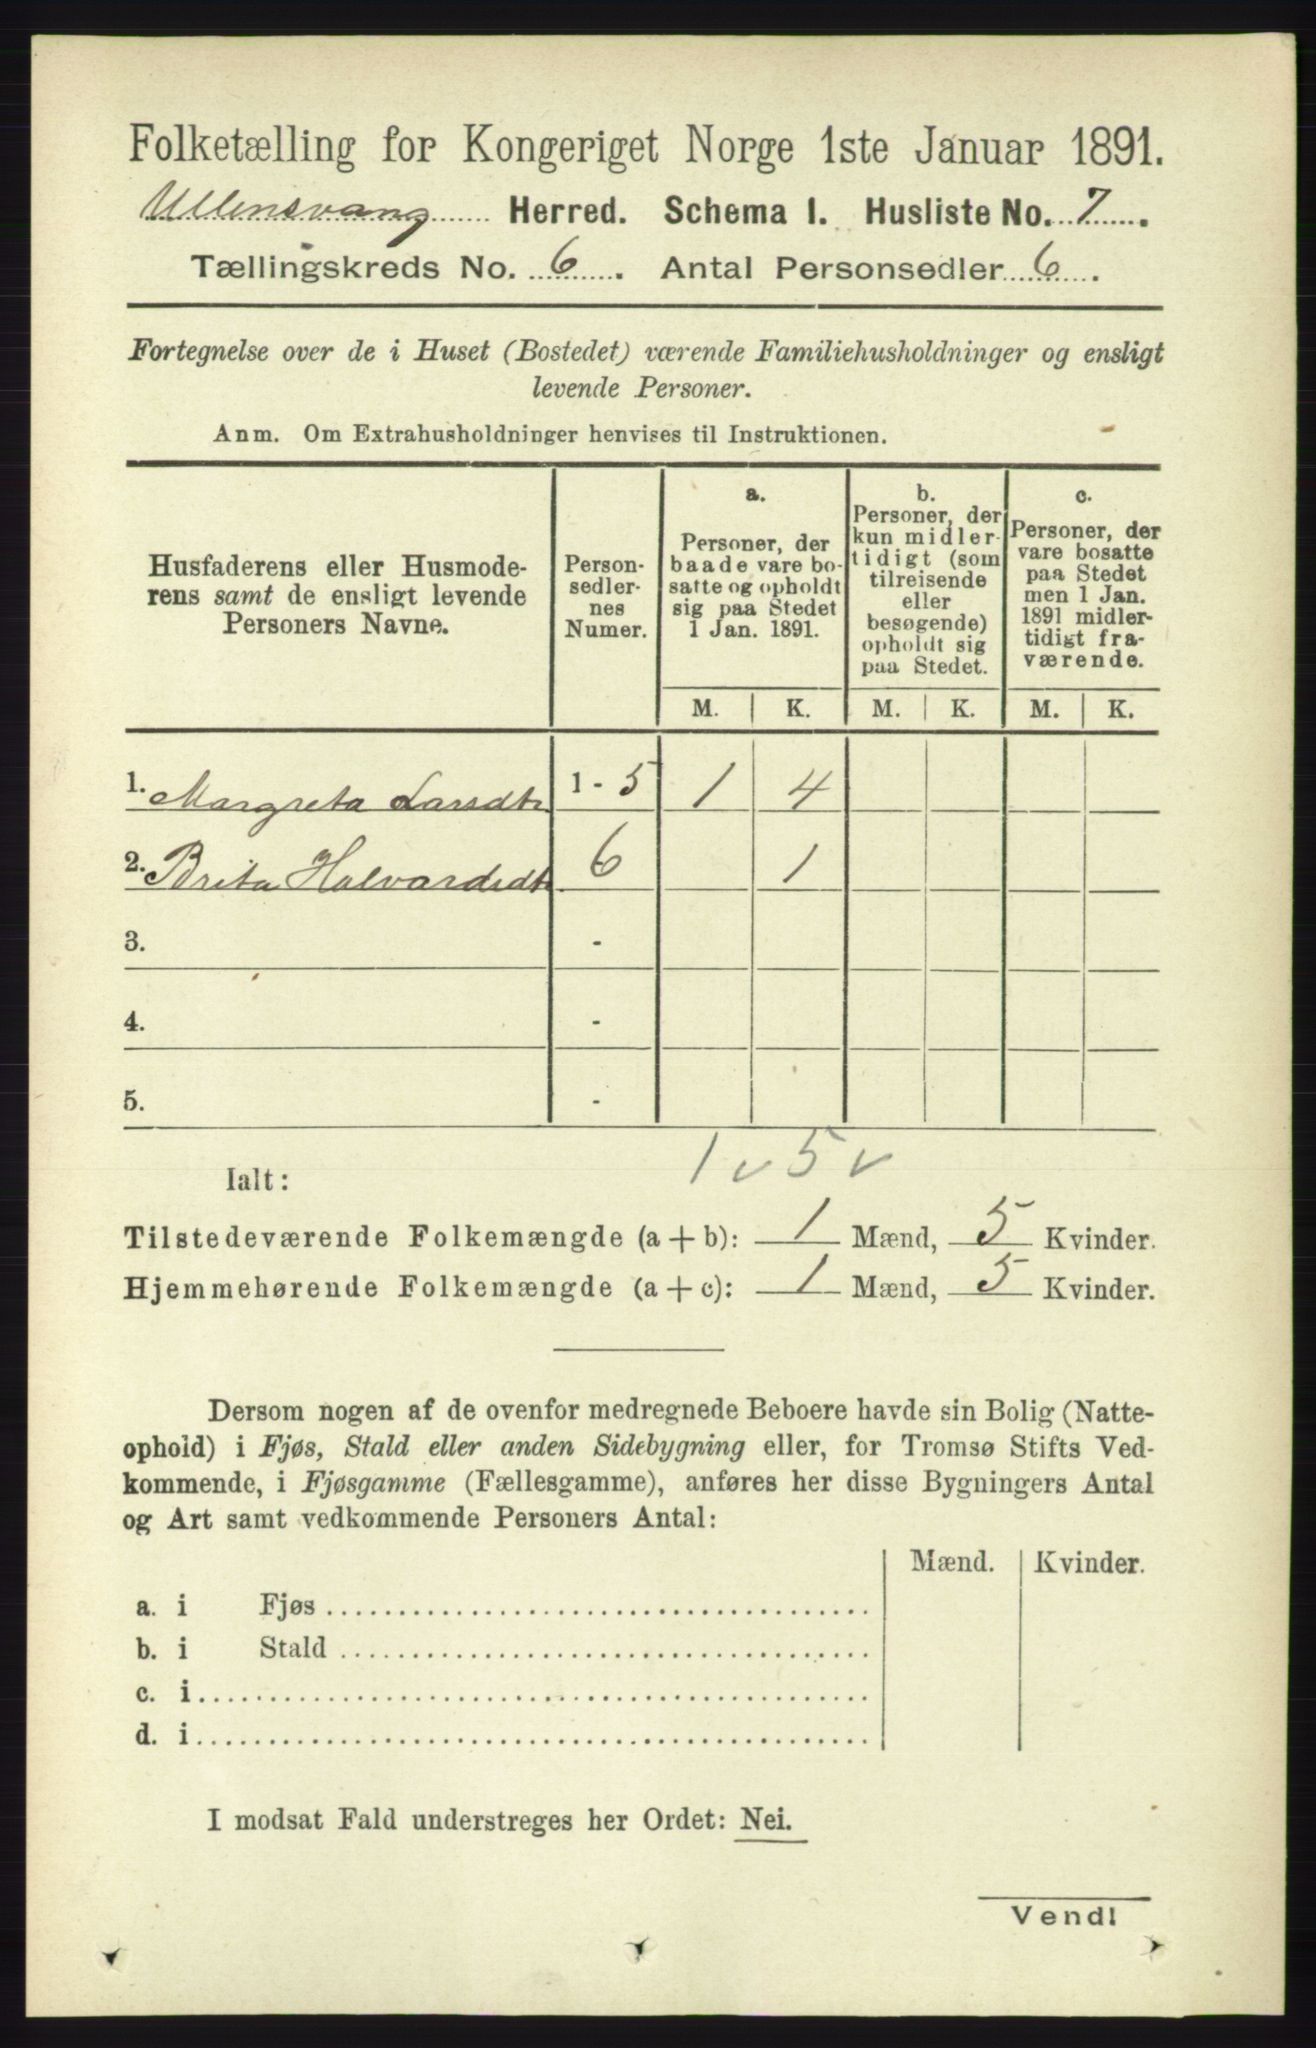 Folketælling for Kongeriget Norge 1ste Januar 1891.
Ullensvang Herred. Schema I. Husliste No. 7.
Tællingskreds No. 6. Antal Personsedler 6.
Fortegnelse over de i Huset (Bostedet) værende Familiehusholdninger og ensligt
levende Personer.
Anm. Om Extrahusholdninger henvises til Instruktionen.
Husfaderens eller Husmode-
rens samt de ensligt levende
Personers Navne.
Person-
sedler-
nes
Numer.
a.
Personer, der
baade vare bo-
satte og opholdt
sig paa Stedet
1 Jan. 1891.
b.
Personer, der
kun midler-
tidigt (som
tilreisende
eller
besøgende)
opholdt sig
paa Stedet.
c.
Personer, der
vare bosatte
paa Stedet
men 1 Jan.
1891 midler-
tidigt fra-
værende.
M. K. M. K. M. K.
1. Margreta Larsdt. 1 - 5 1 4
2. Brita Halvardsdt. 6 1
3. -
4. -
5. -
1 v 5 v
Ialt:
Tilstedeværende Folkemængde (a + b): 1 Mænd, 5 Kvinder.
Hjemmehørende Folkemængde (a + c): 1 Mænd, 5 Kvinder.
Dersom nogen af de ovenfor medregnede Beboere havde sin Bolig (Natte-
ophold) i Fjøs, Stald eller anden Sidebygning eller, for Tromsø Stifts Ved-
kommende, i Fjøsgamme (Fællesgamme), anføres her disse Bygningers Antal
og Art samt vedkommende Personers Antal:
Mænd. Kvinder.
a. i Fjøs
b. i Stald
c. i
d. i
I modsat Fald understreges her Ordet: Nei.
Vend!